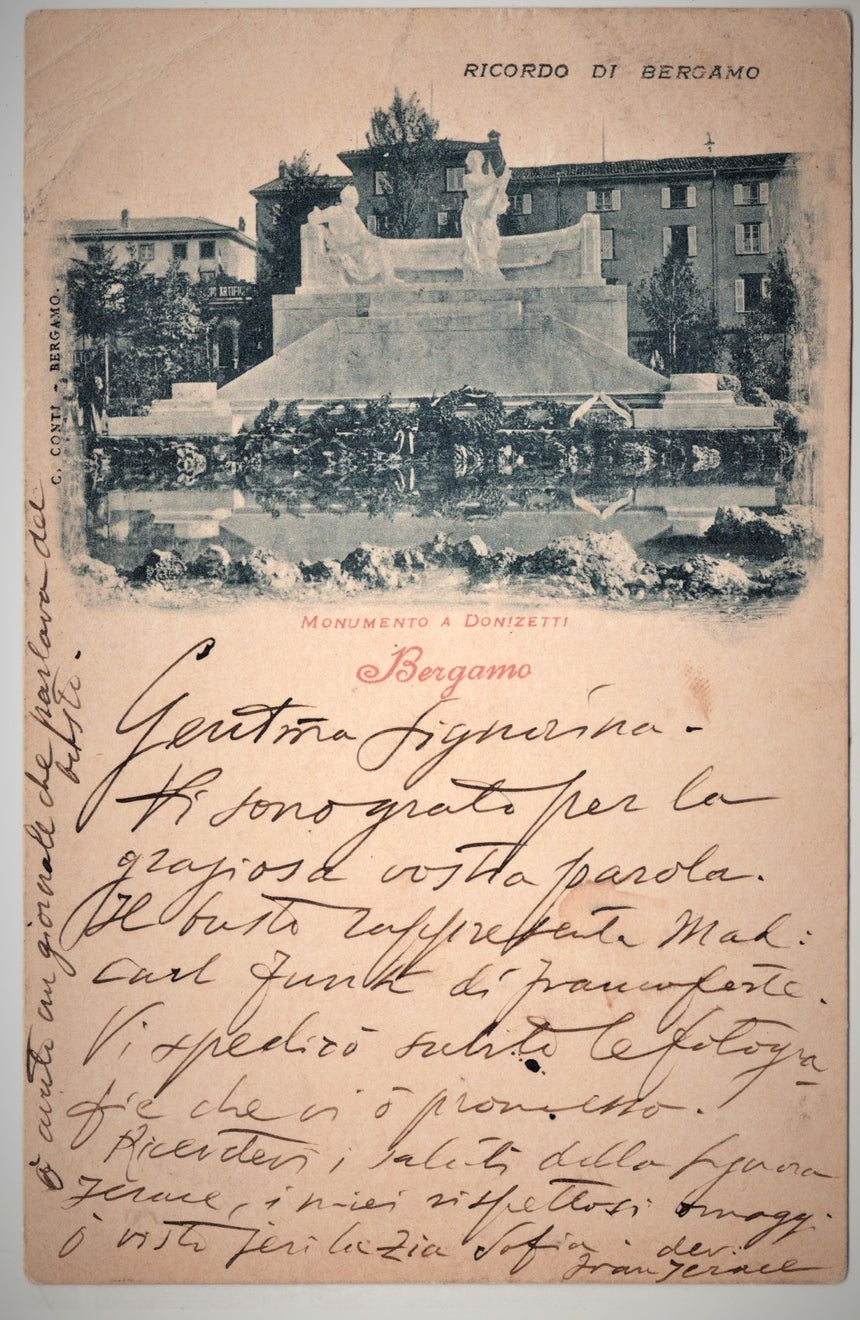 RICORDO DI BERGAMO
C. CONTI - BERGAMO.
MONUMENTO A DONIZETTI
Bergamo
Gentma Signorina -
Vi sono grato per la
graziosa vostra parola.
Il busto rappresenta Mad:
Carl Junk di Francoforte.
Vi spedirò subito le fotogra
fie che vi ò promesso.
Ricevetevi i saluti della Signora
Jerace, i miei rispettosi omaggi.
ò visto jeri la Zia Sofia. dev:
Fran Jerace
ò avuto un giornale che parlava del
busto.